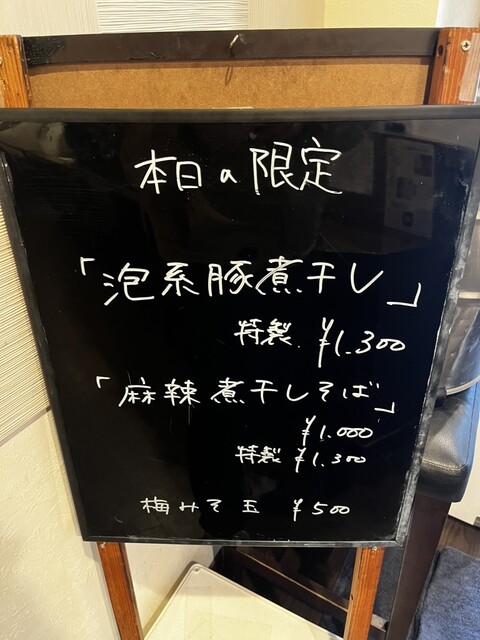 本日の限定
「泡系豚煮干し」
特製. ¥1.300
「麻辣煮干しそば」
¥1.000
特製 ¥1.300
梅みそ玉 ¥500